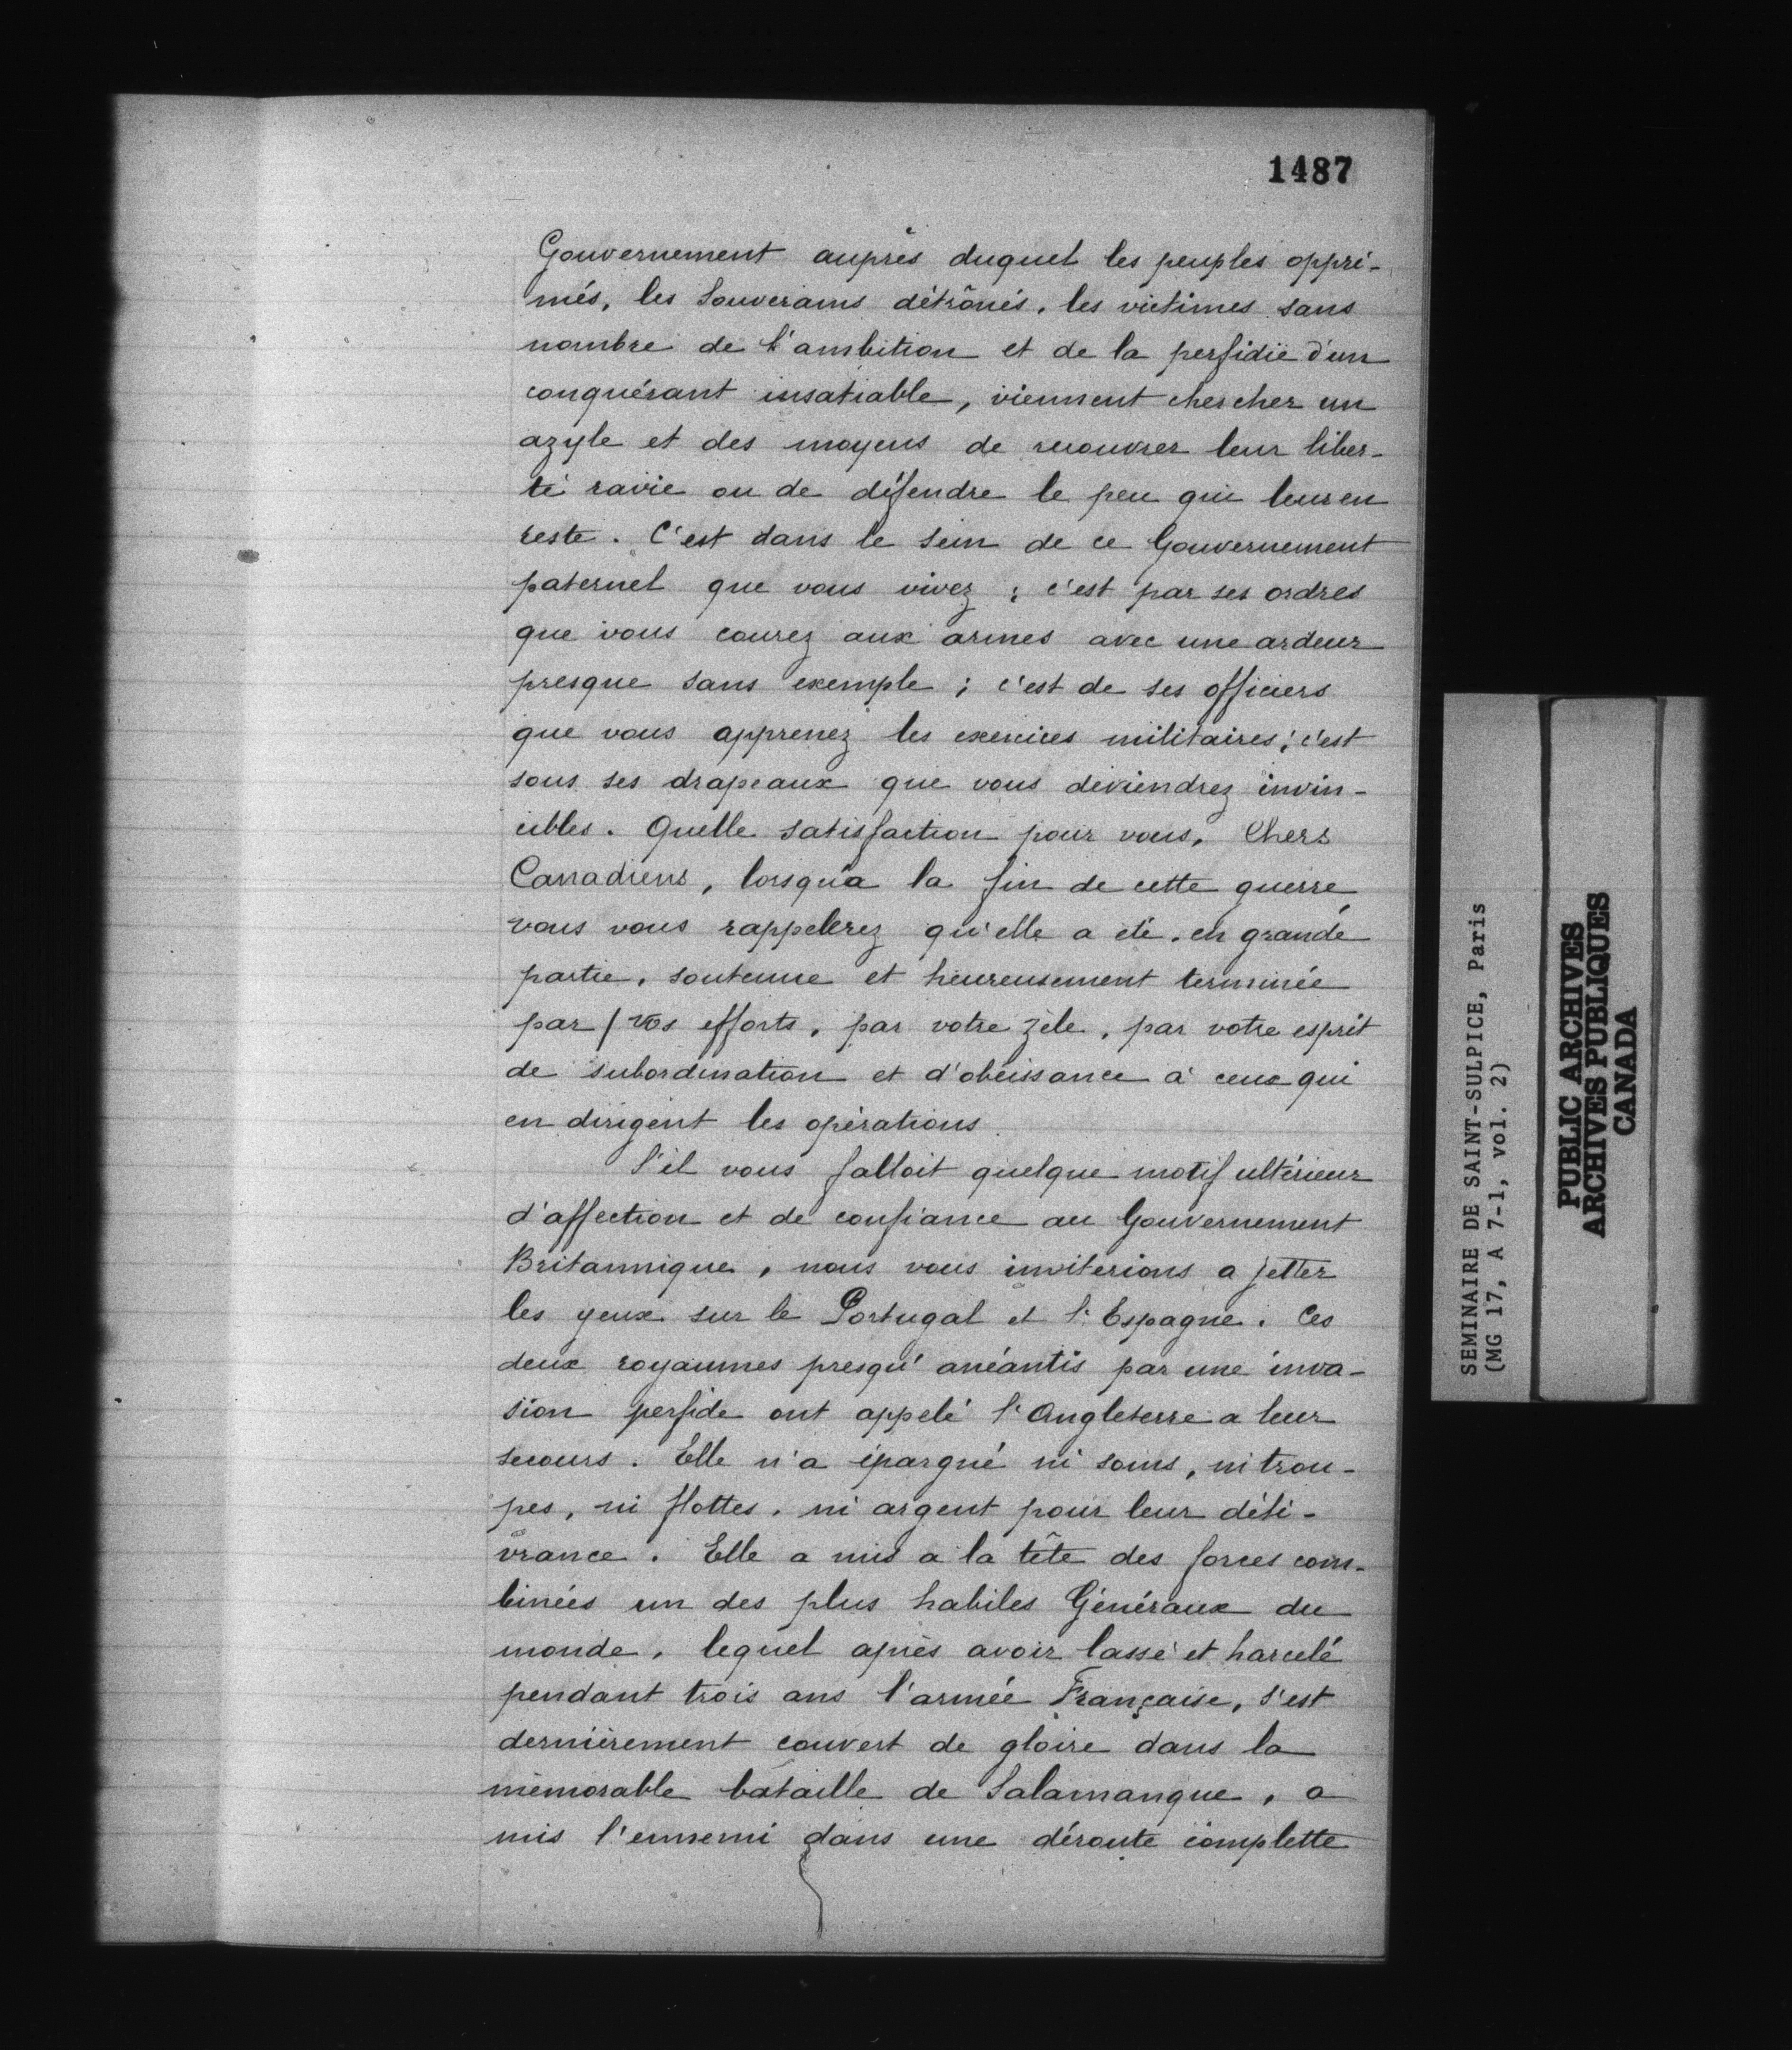 1487
Gouvernement auprès duquel les peuples oppri-
més, les Souverains détrônés, les victimes sans
nombre de l'ambition et de la perfidie d'un
conquérant insatiable, viennent chercher un
azyle et des moyens de recouvrer leur liber-
té ravie ou de défendre le peu qui leur en
reste. C'est dans le sein de ce Gouvernement
paternel que vous vivez ; c'est par ses ordres
que vous courez aux armes avec une ardeur
presque sans exemple ; c'est de ses officiers
que vous apprenez les exercices militaires ; c'est
sous ses drapeaux que vous deviendrez invin-
cibles. Quelle satisfaction pour vous, Chers
Canadiens, lorsqu'a la fin de cette guerre,
vous vous rappelerez qu'elle a été, en grande
partie, soutenue et heureusement terminée
par / vos efforts, par votre zèle, par votre esprit
de subordination et d'obéissance à ceux qui
en dirigent les opérations.
S'il vous falloit quelque motif ultérieur
d'affection et de confiance au Gouvernement
Britannique, nous vous inviterions a jetter
les yeux sur le Portugal et l'Espagne. Ces
deux royaumes presqu'anéantis par une inva-
sion perfide ont appelé l'Angleterre a leur
secours. Elle n'a épargné ni soins, ni trou-
pes, ni flottes, ni argent pour leur déli-
vrance. Elle a mis a la tête des forces com-
binées un des plus habiles Généraux du
monde, lequel après avoir lassé et harcelé
pendant trois ans l'armée Française, s'est
dernièrement couvert de gloire dans la
mémorable bataille de Salamanque, a
mis l'ennemi dans une déroute complette
SEMINAIRE DE SAINT-SULPICE, Paris
(MG 17, A 7-1, vol. 2)
PUBLIC ARCHIVES
ARCHIVES PUBLIQUES
CANADA